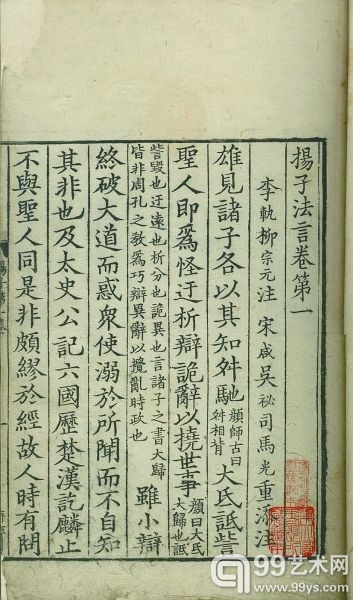 揚子法言卷第一
李軌柳宗元注 宋咸吳祕司馬光重添注
雄見諸子各以其知舛馳顏師古曰舛相背大氐詆訾
聖人即爲怪迂析辯詭辭以撓世事顏曰大氐大歸也詆
訾毀也迂遠也析分也詭異也言諸子之書大歸皆非周孔之教爲巧辯異辭以攪亂時政也雖小辯
終破大道而惑衆使溺於所聞而不自知
其非也及太史公記六國歷楚漢訖麟止
不與聖人同是非頗繆於經故人時有問
99艺术网
www.99ys.com